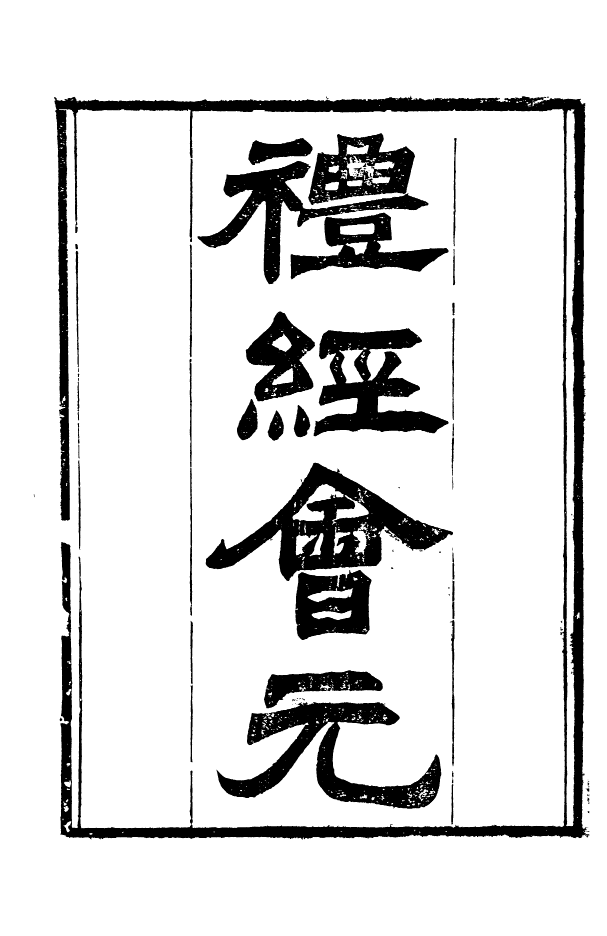 禮經會元